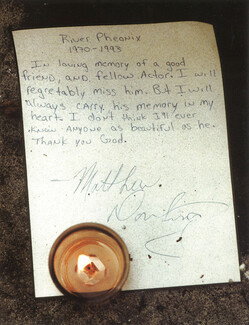 River Pheonix
1970-1993
In loving memory of a good
friend, and fellow Actor. I will
regretably miss him. But I will
always carry his memory in my
heart. I don't think I'll ever
know anyone as beautiful as he.
Thank you God.
Matthew